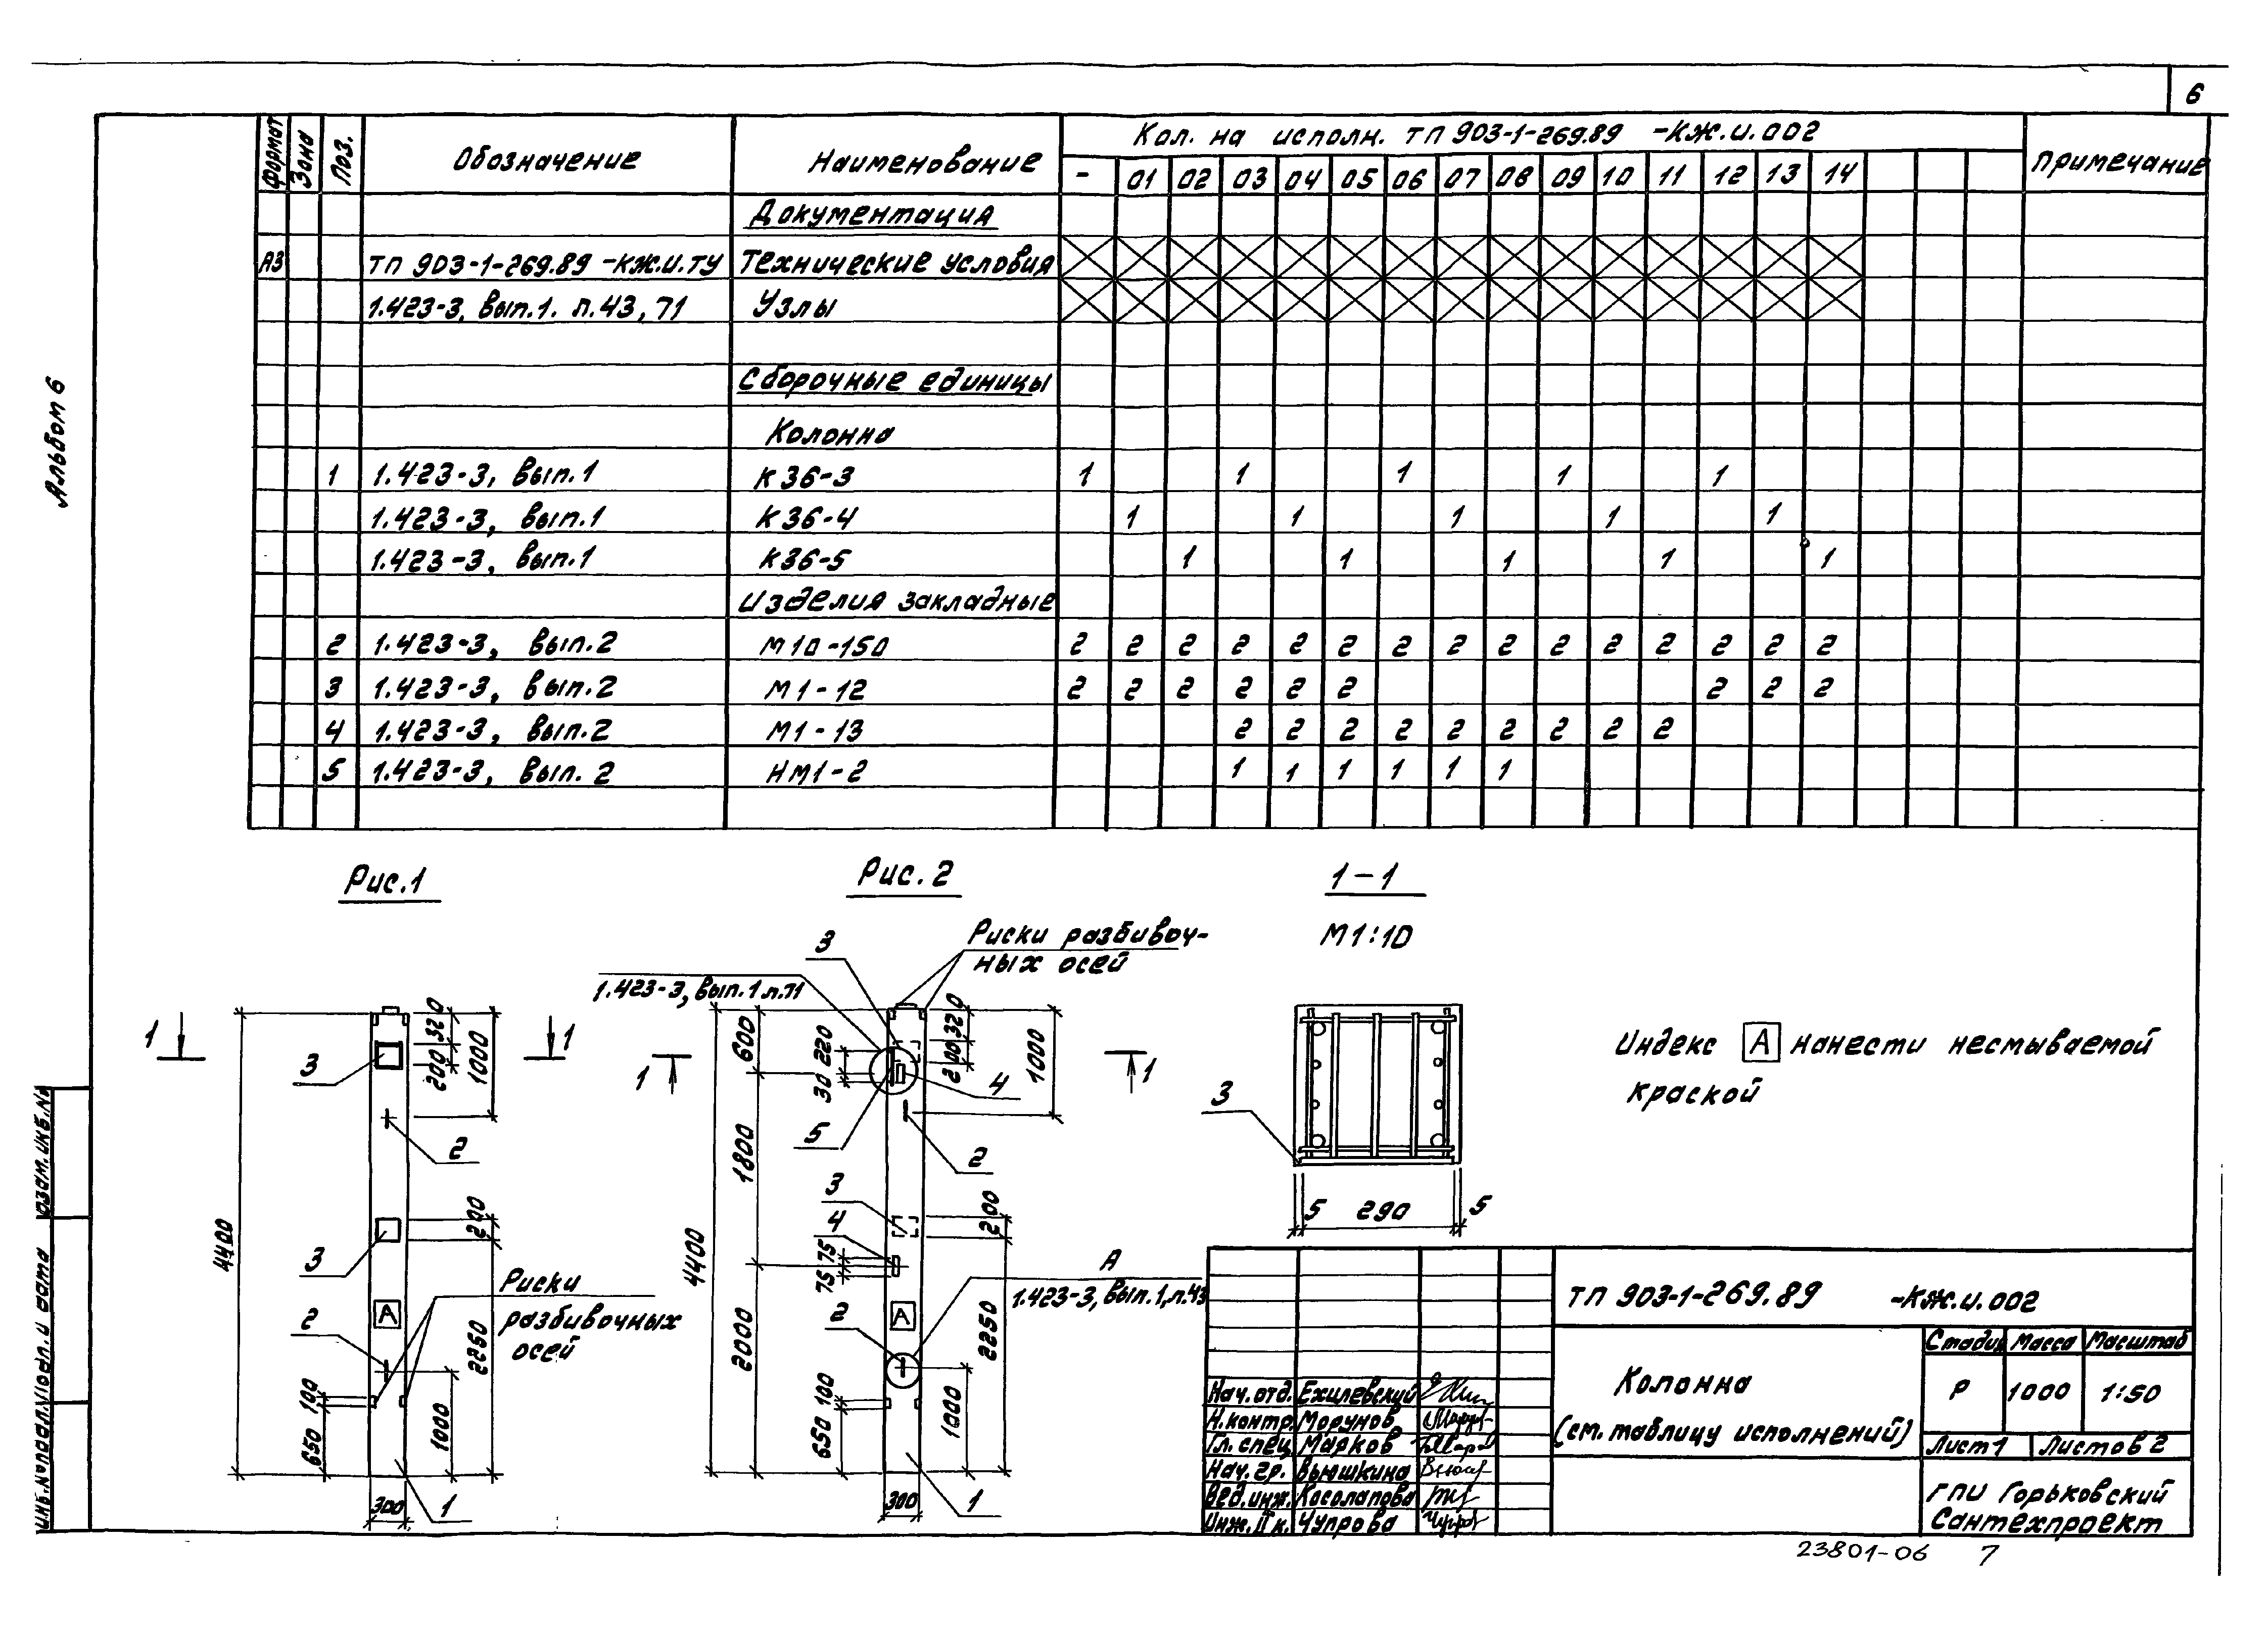 6
Альбом 6
Формат Зона Поз. Обозначение Наименование Кол. на исполн. ТП 903-1-269.89 -КЖ.И.002 Примечание
- 01 02 03 04 05 06 07 08 09 10 11 12 13 14
Документация
А3 ТП 903-1-269.89 -КЖ.И.ТУ Технические условия
1.423-3, вып.1. л.43, 71 Узлы
Сборочные единицы
Колонна
1 1.423-3, вып.1 К36-3 1 1 1 1 1
1.423-3, вып.1 К36-4 1 1 1 1 1
1.423-3, вып.1 К36-5 1 1 1 1 1
Изделия закладные
2 1.423-3, вып.2 М10-150 2 2 2 2 2 2 2 2 2 2 2 2 2 2 2
3 1.423-3, вып.2 М1-12 2 2 2 2 2 2 2 2 2
4 1.423-3, вып.2 М1-13 2 2 2 2 2 2 2 2 2
5 1.423-3, вып. 2 НМ1-2 1 1 1 1 1 1
Рис.1
1 1
3
320
200
1000
2
4400
200
3
Риски
разбивочных
осей
А
2
2250
100
650
1000
300
1
Рис. 2
3
Риски разбивоч-
ных осей
1.423-3, вып.1 л.71
600
220
30
320
200
1000
4
1 1
5
2
1800
3
200
4
75
75
4400
А
1.423-3, вып.1, л.43
А
2
2000
2250
100
650
1000
300
1
1-1
М1:10
3
5 290 5
Индекс А нанести несмываемой
краской
ТП 903-1-269.89 -КЖ.И.002
Колонна
(см. таблицу исполнений)
Стадия Масса Масштаб
Р 1000 1:50
Лист 1 Листов 2
ГПИ Горьковский
Сантехпроект
Нач. отд. Ехилевский
Н.контр. Морунов
Гл. спец. Маяков
Нач. гр. Вьюшкина
Вед. инж. Косолапова
Инж. II к. Чупрова
Инв.№подл. Подп. и дата Взам.инв.№
23801-06 7